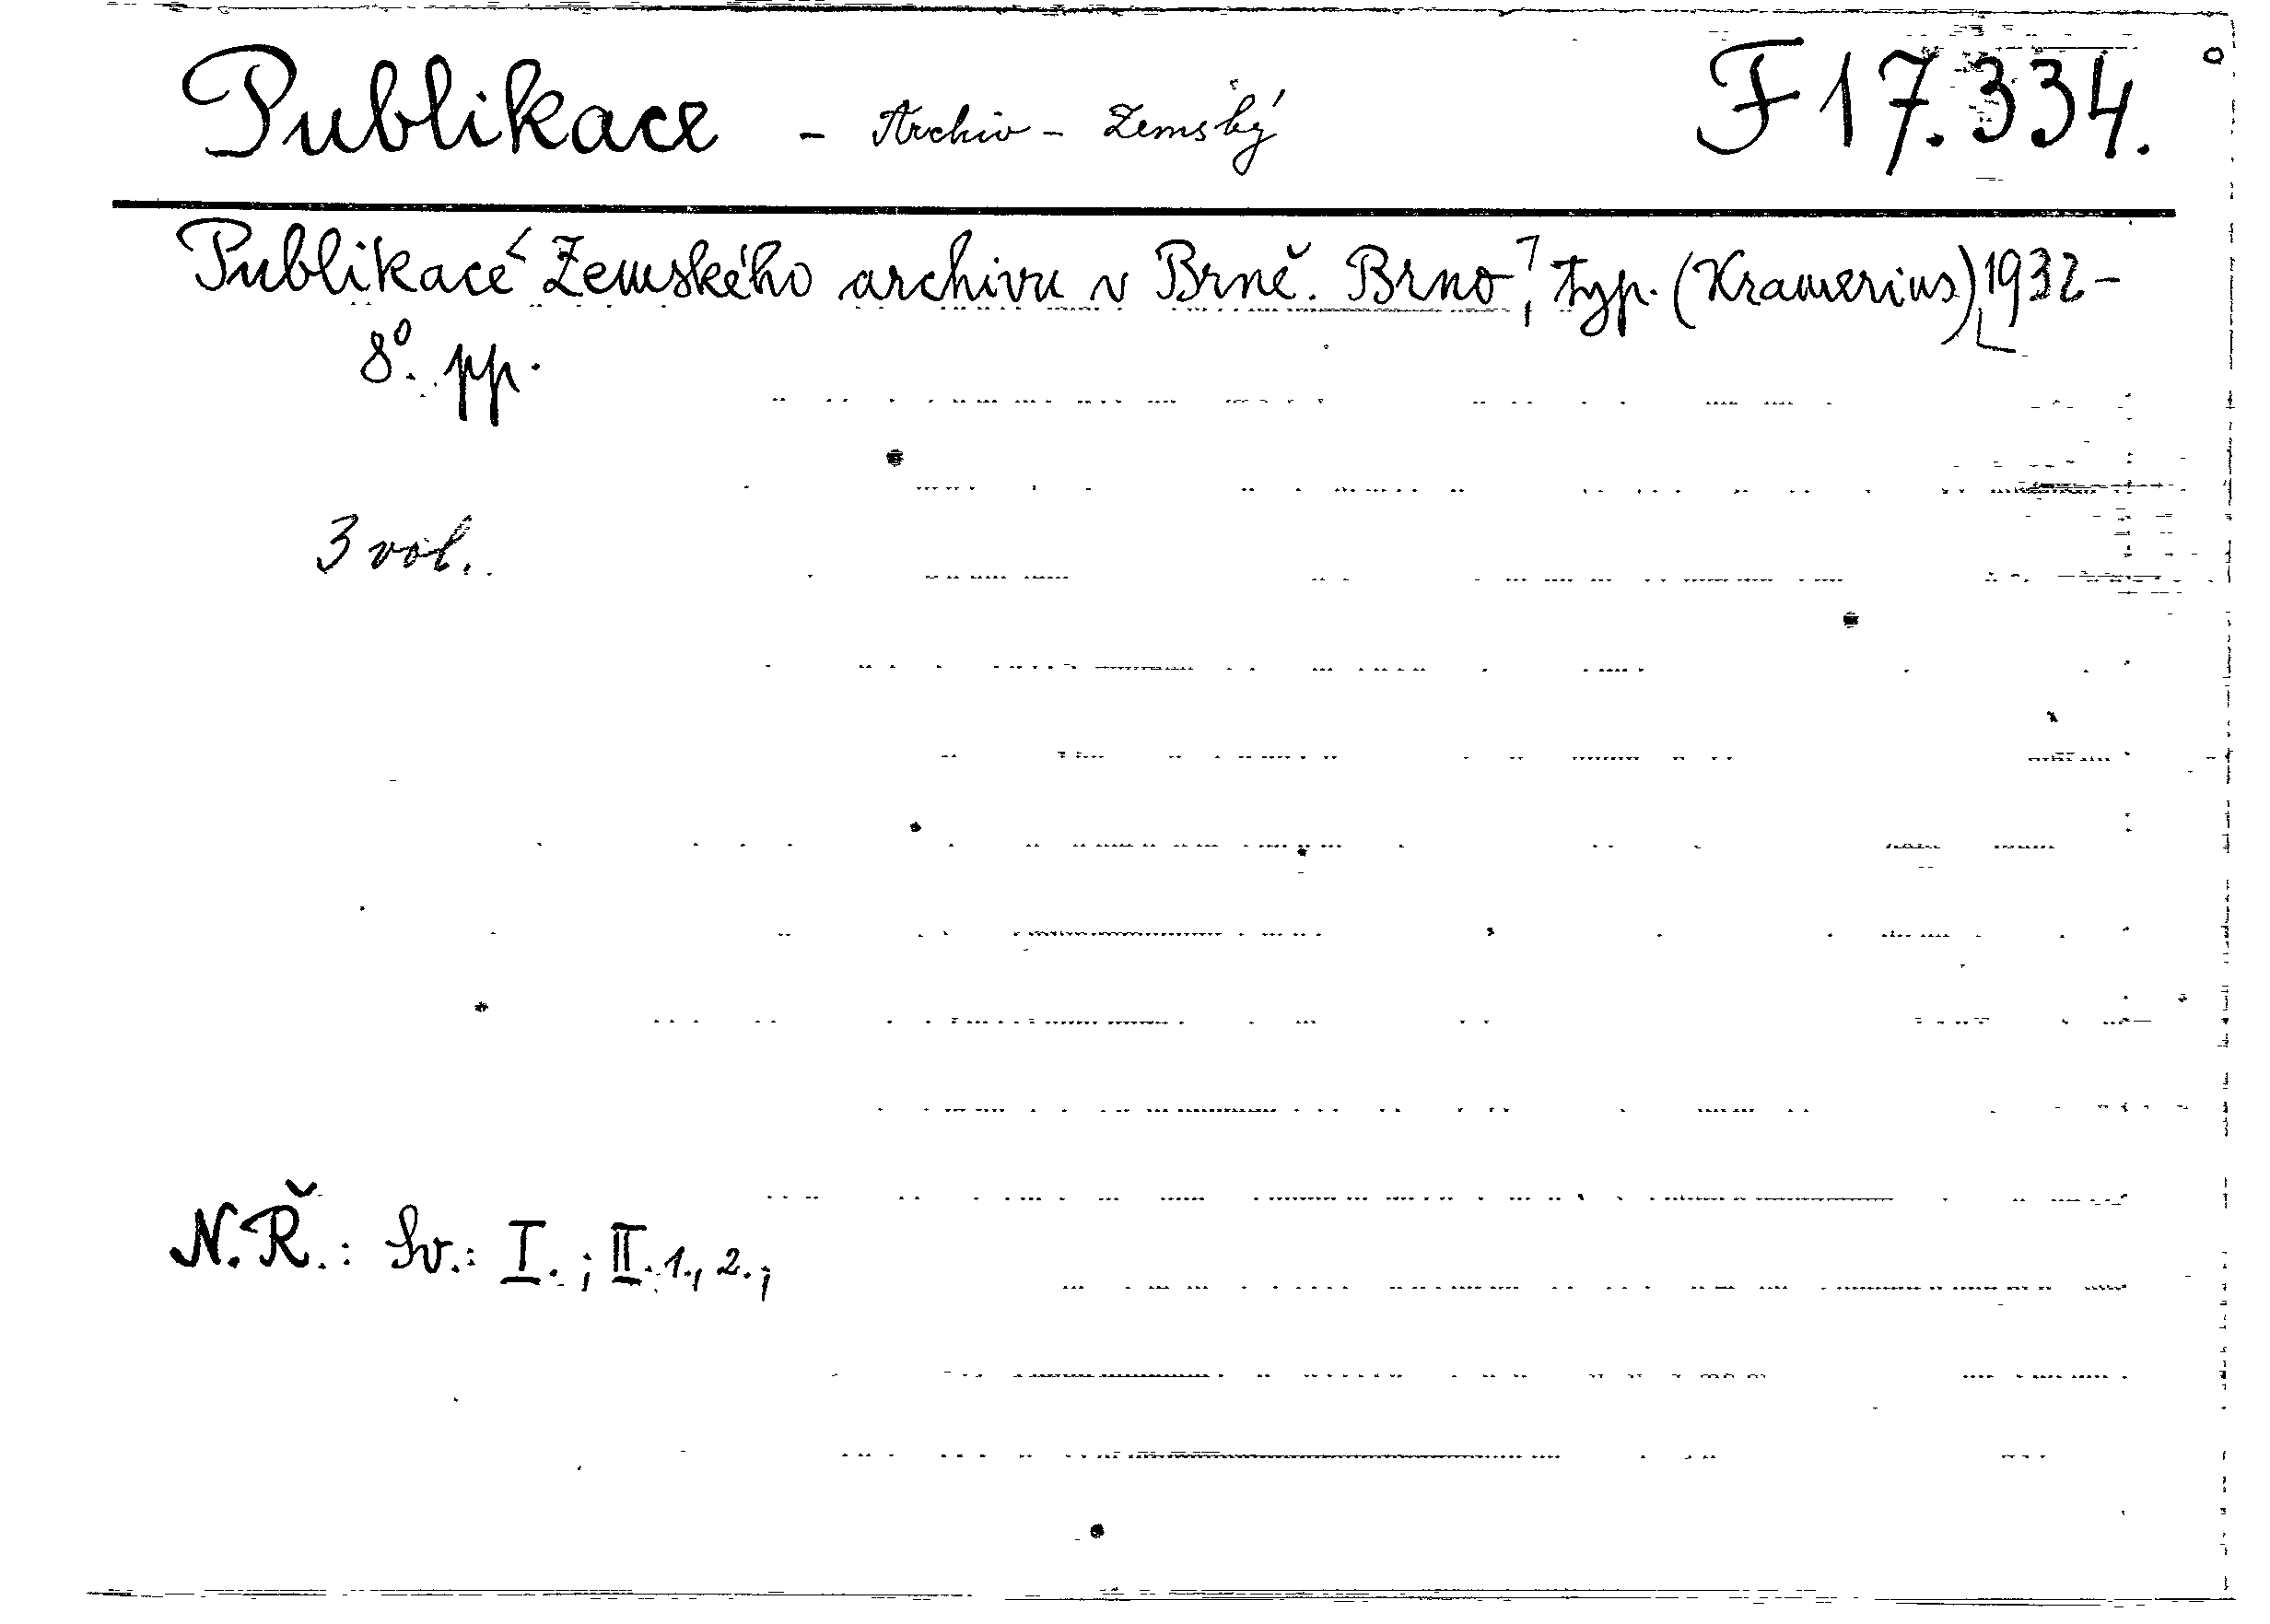 Publikace - Archiv - Zemský F 17.334.
Publikace Zemského archivu v Brně. Brno, typ. (Kramerius) 1932-
8⁰. pp.
3 vol.
N.Ř.: Sv.: I.; II. 1., 2.;